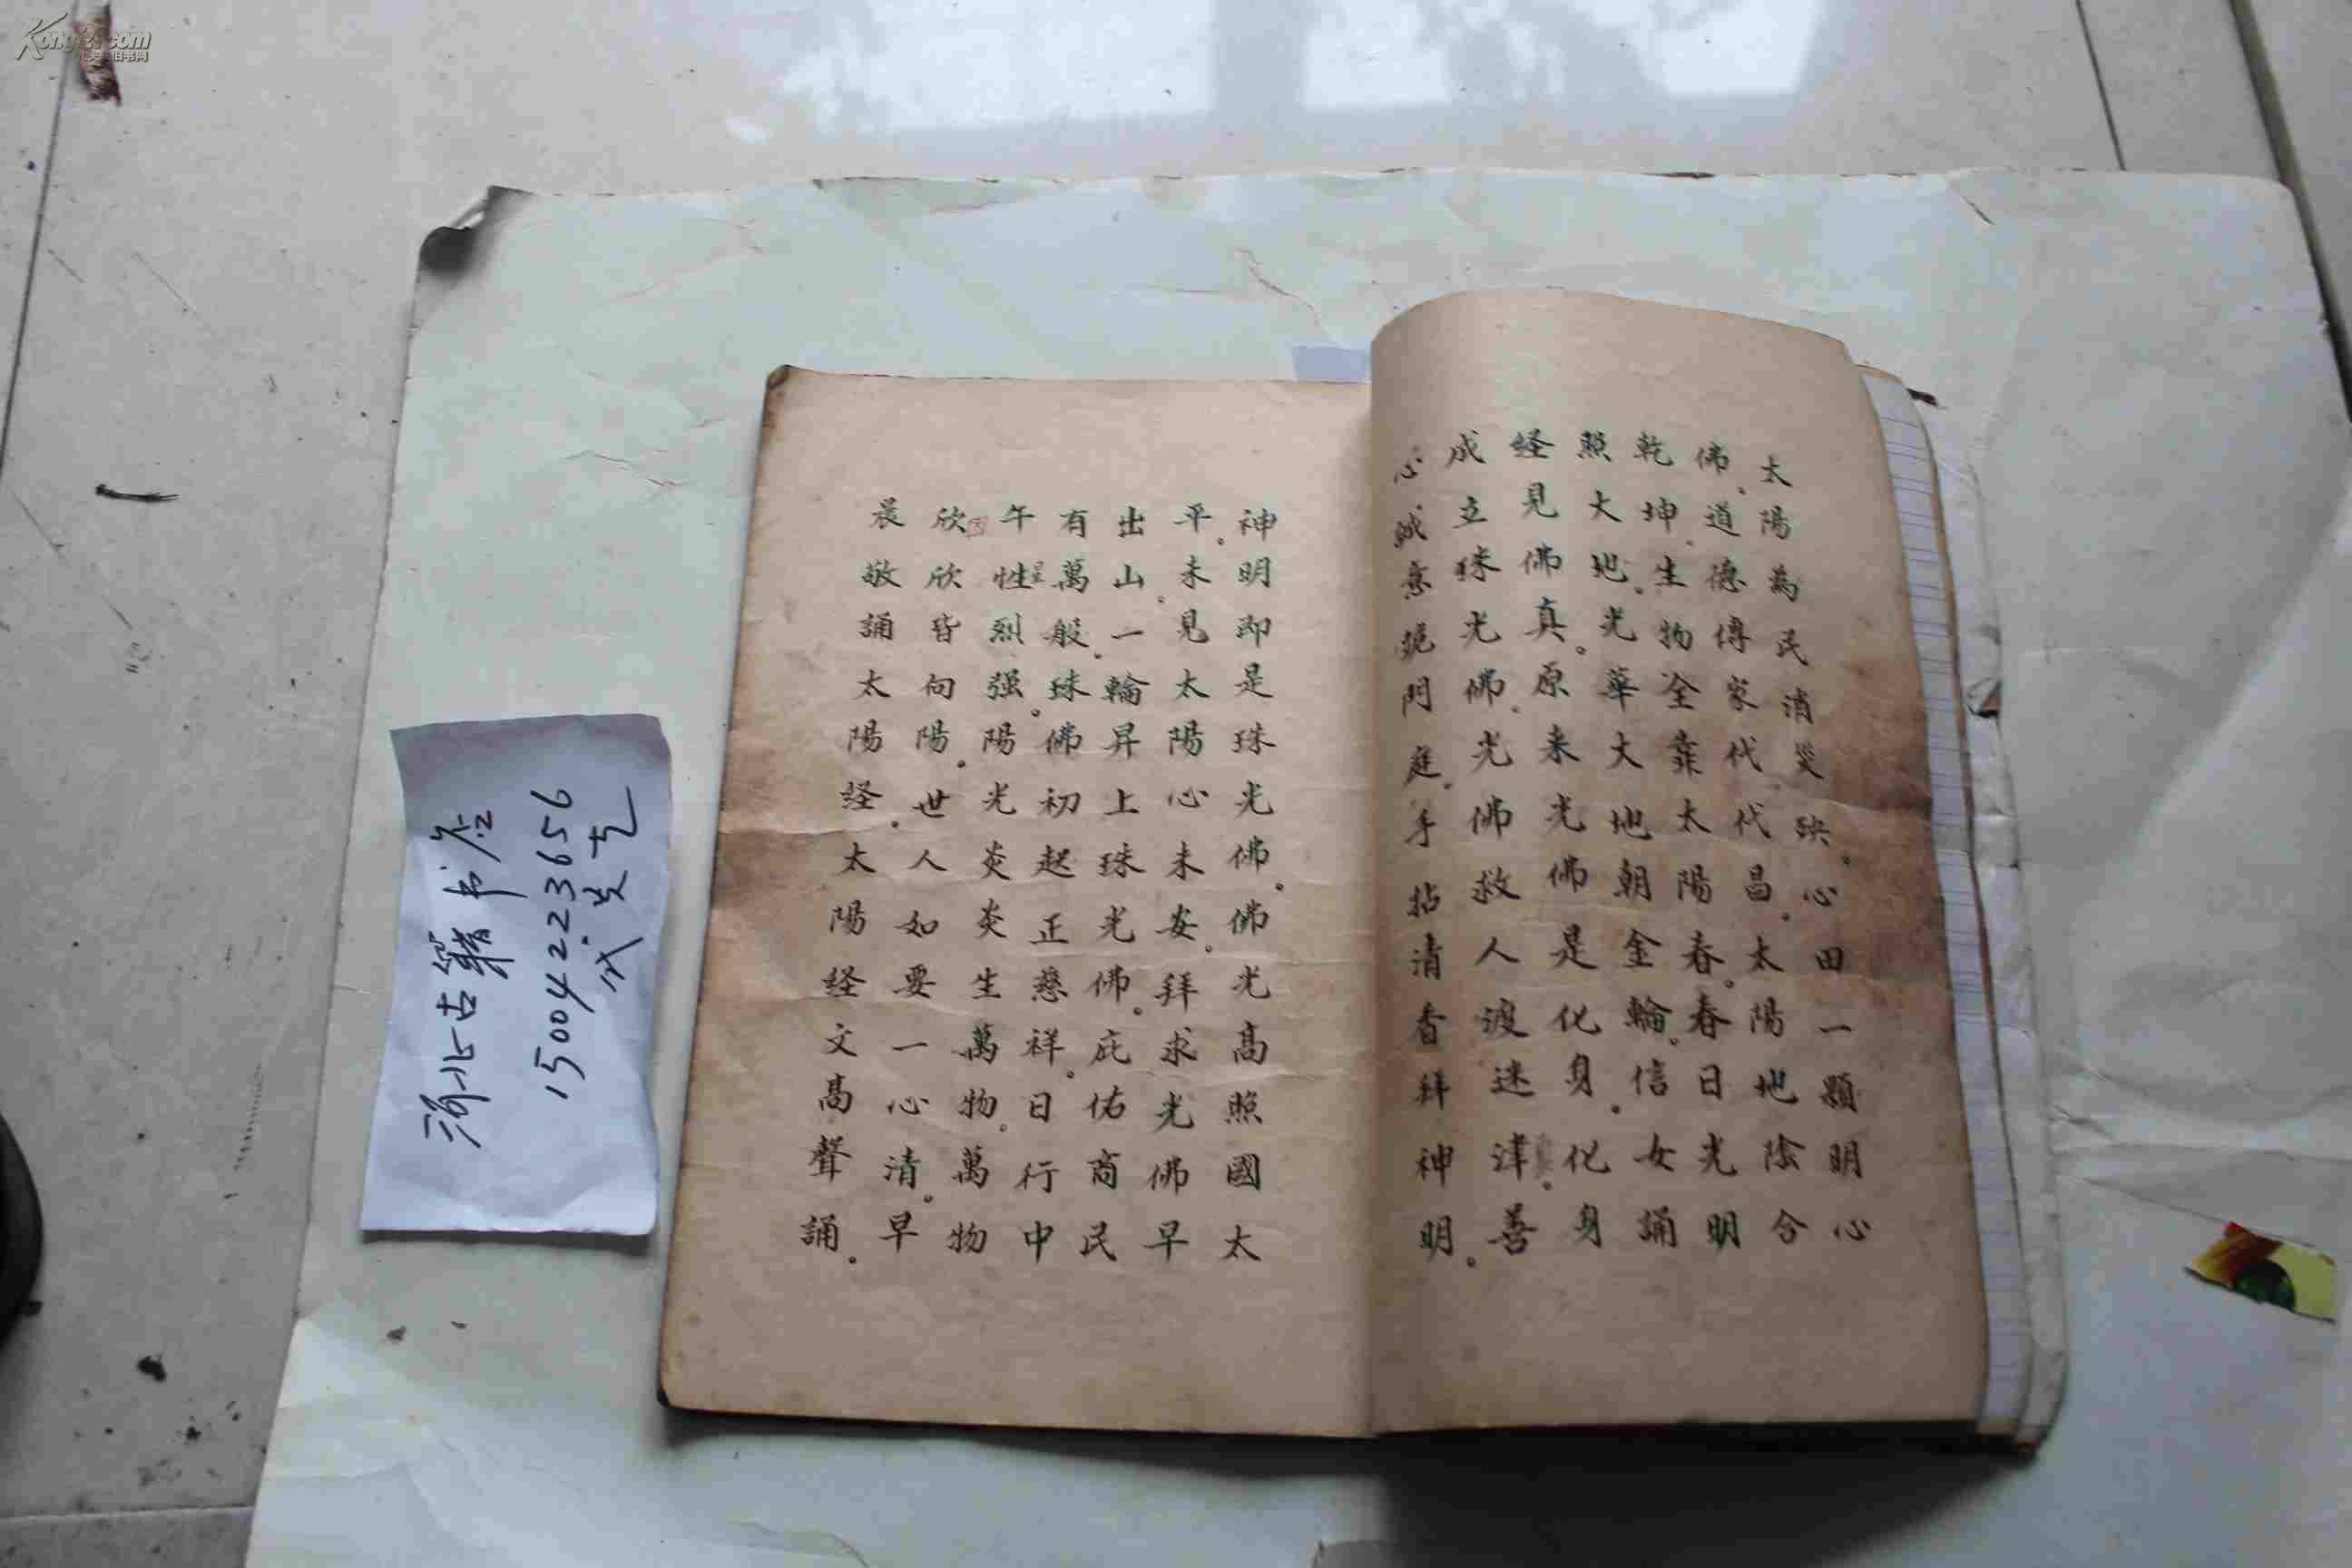 太陽為民消災殃。心田一顆明心
佛、道德傳家代代昌。太陽地陰合
乾坤。生物全靠太陽春。春日光明
照大地。光華大地朝金輪。信女誦
経見佛真。原来光佛是化身。化身
成立珠光佛。光佛救人渡迷津。善
心誠意跪門庭。手拈清香拜神明。
神明即是珠光佛。佛光高照國太
平。未見太陽心未安。拜求光佛早
出山。一輪昇上珠光佛。庇佑商民
有萬般。珠佛初起正慈祥。日行中
午性烈强。陽光炎炎生萬物。萬物
欣欣皆向陽。世人如要一心清。早
晨敬誦太陽経。太陽経文高聲誦。
河北古籍书店
15004223656
Kongfz.com
旧书网